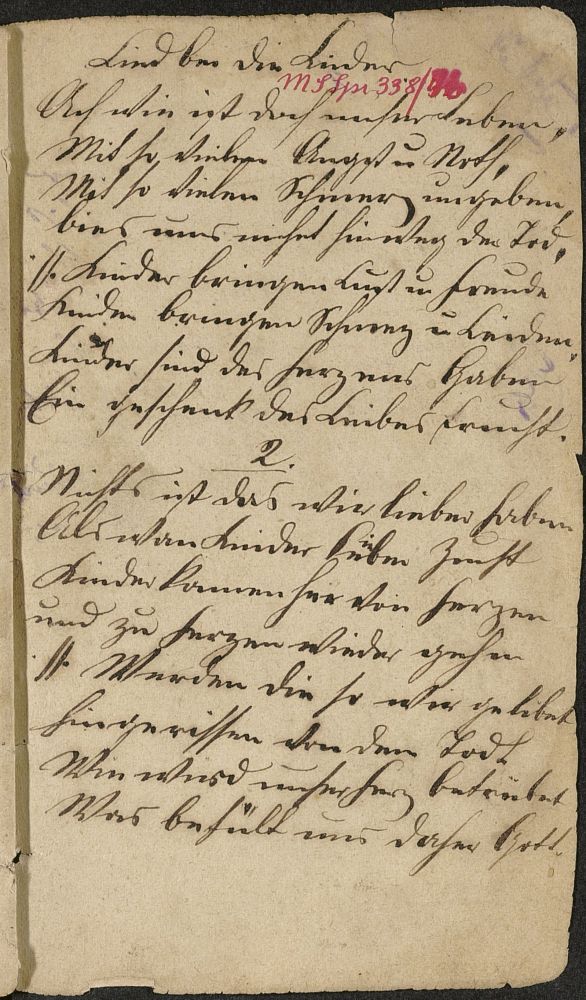 Lied bei die Kinder
MS Spr 338/96
Ach wie ist doch unser Leben,
Mit so vielen Angst u Noth,
Mit so vielen Schmerz umgeben,
bies uns nicht hinweg der Tod,
//: Kinder bringen Lust u Freude
Kinder bringen Schmerz u Leiden,
Kinder sind des Herzens Gaben
Ein geschenk des Leibes Frucht.
2.
Nichts ist das wir lieber haben
Als wan Kinder lieben Zucht
Kinder kamen her von Herzen
und zu Herzen wieder gehen
//: Werden die so wir gelibet
hingerissen von dem Todt
Wie wird unser Herz betrübet
Was befält uns daher Gott.